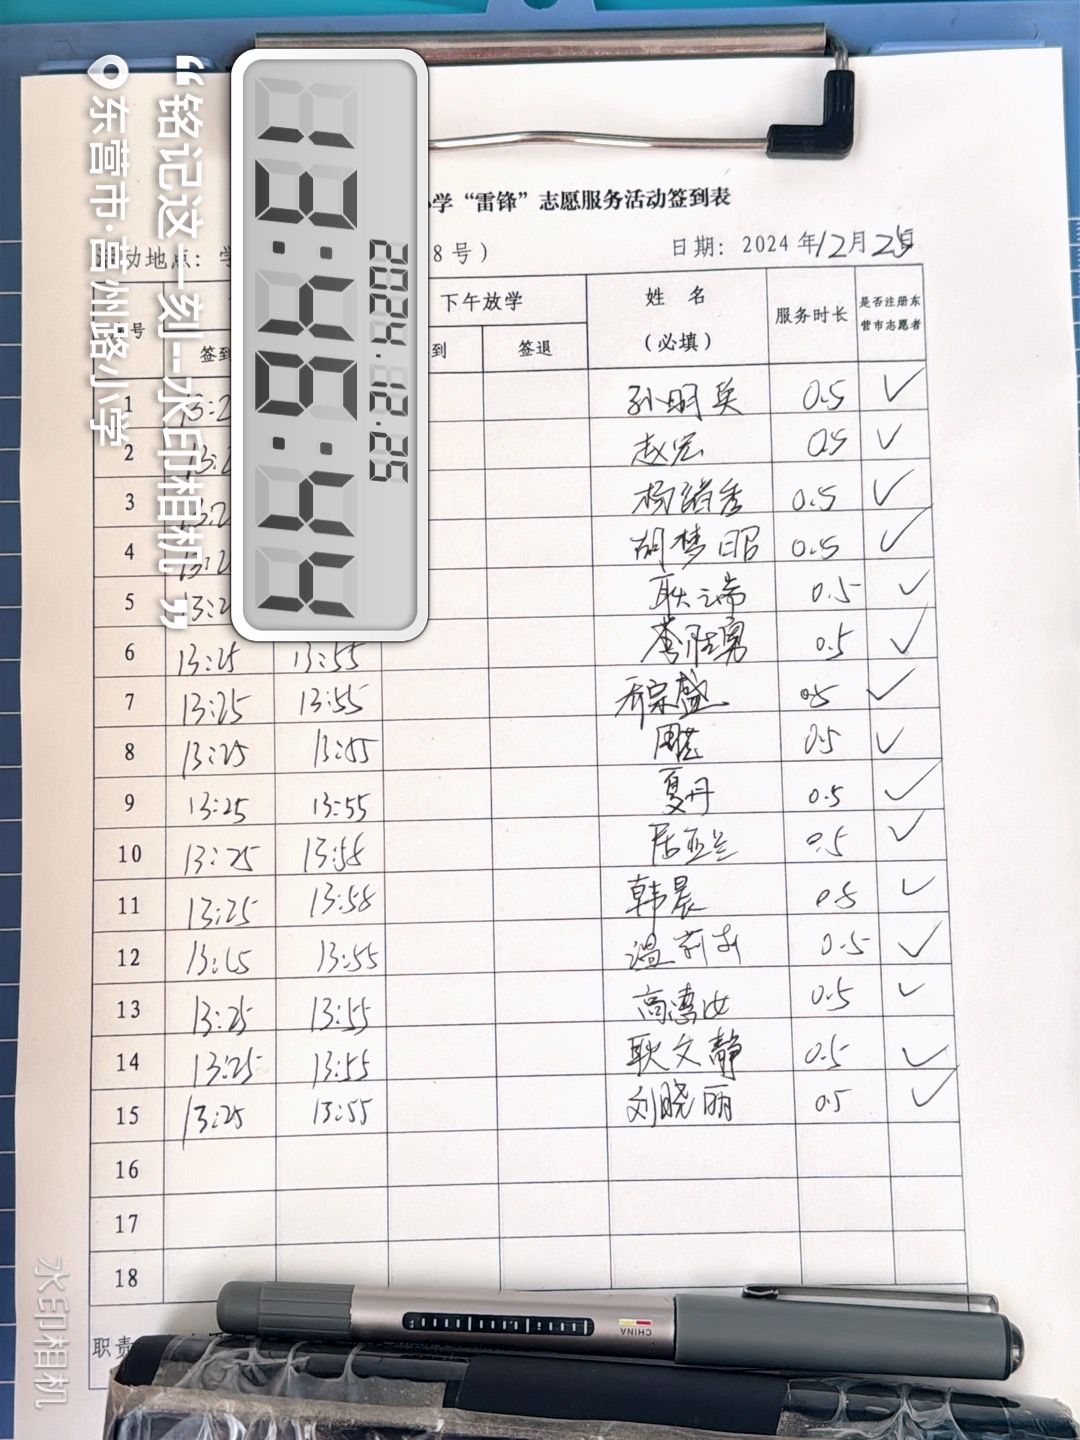 “铭记这一刻--水印相机”
东营市·莒州路小学
13:26:44
2024.12.25
小学“雷锋”志愿服务活动签到表
活动地点：学 8号） 日期：2024年12月25日
号 下午放学 姓名（必填） 服务时长 是否注册东营市志愿者
签到 到 签退
1 13:2 孙明英 0.5 ✓
2 13:2 赵宏 0.5 ✓
3 13:2 0.5 ✓
4 13:2 胡梦昭 0.5 ✓
5 13:2 耿云端 0.5 ✓
6 13:25 13:55 李胜勇 0.5 ✓
7 13:25 13:55 乔宗盛 0.5 ✓
8 13:25 13:55 0.5 ✓
9 13:25 13:55 夏丹 0.5 ✓
10 13:25 13:58 0.5 ✓
11 13:25 13:58 韩晨 0.5 ✓
12 13:25 13:55 温莉莉 0.5 ✓
13 13:25 13:55 0.5 ✓
14 13:25 13:55 耿文静 0.5 ✓
15 13:25 13:55 刘晓丽 0.5 ✓
16
17
18
职责
CHINA
水印相机